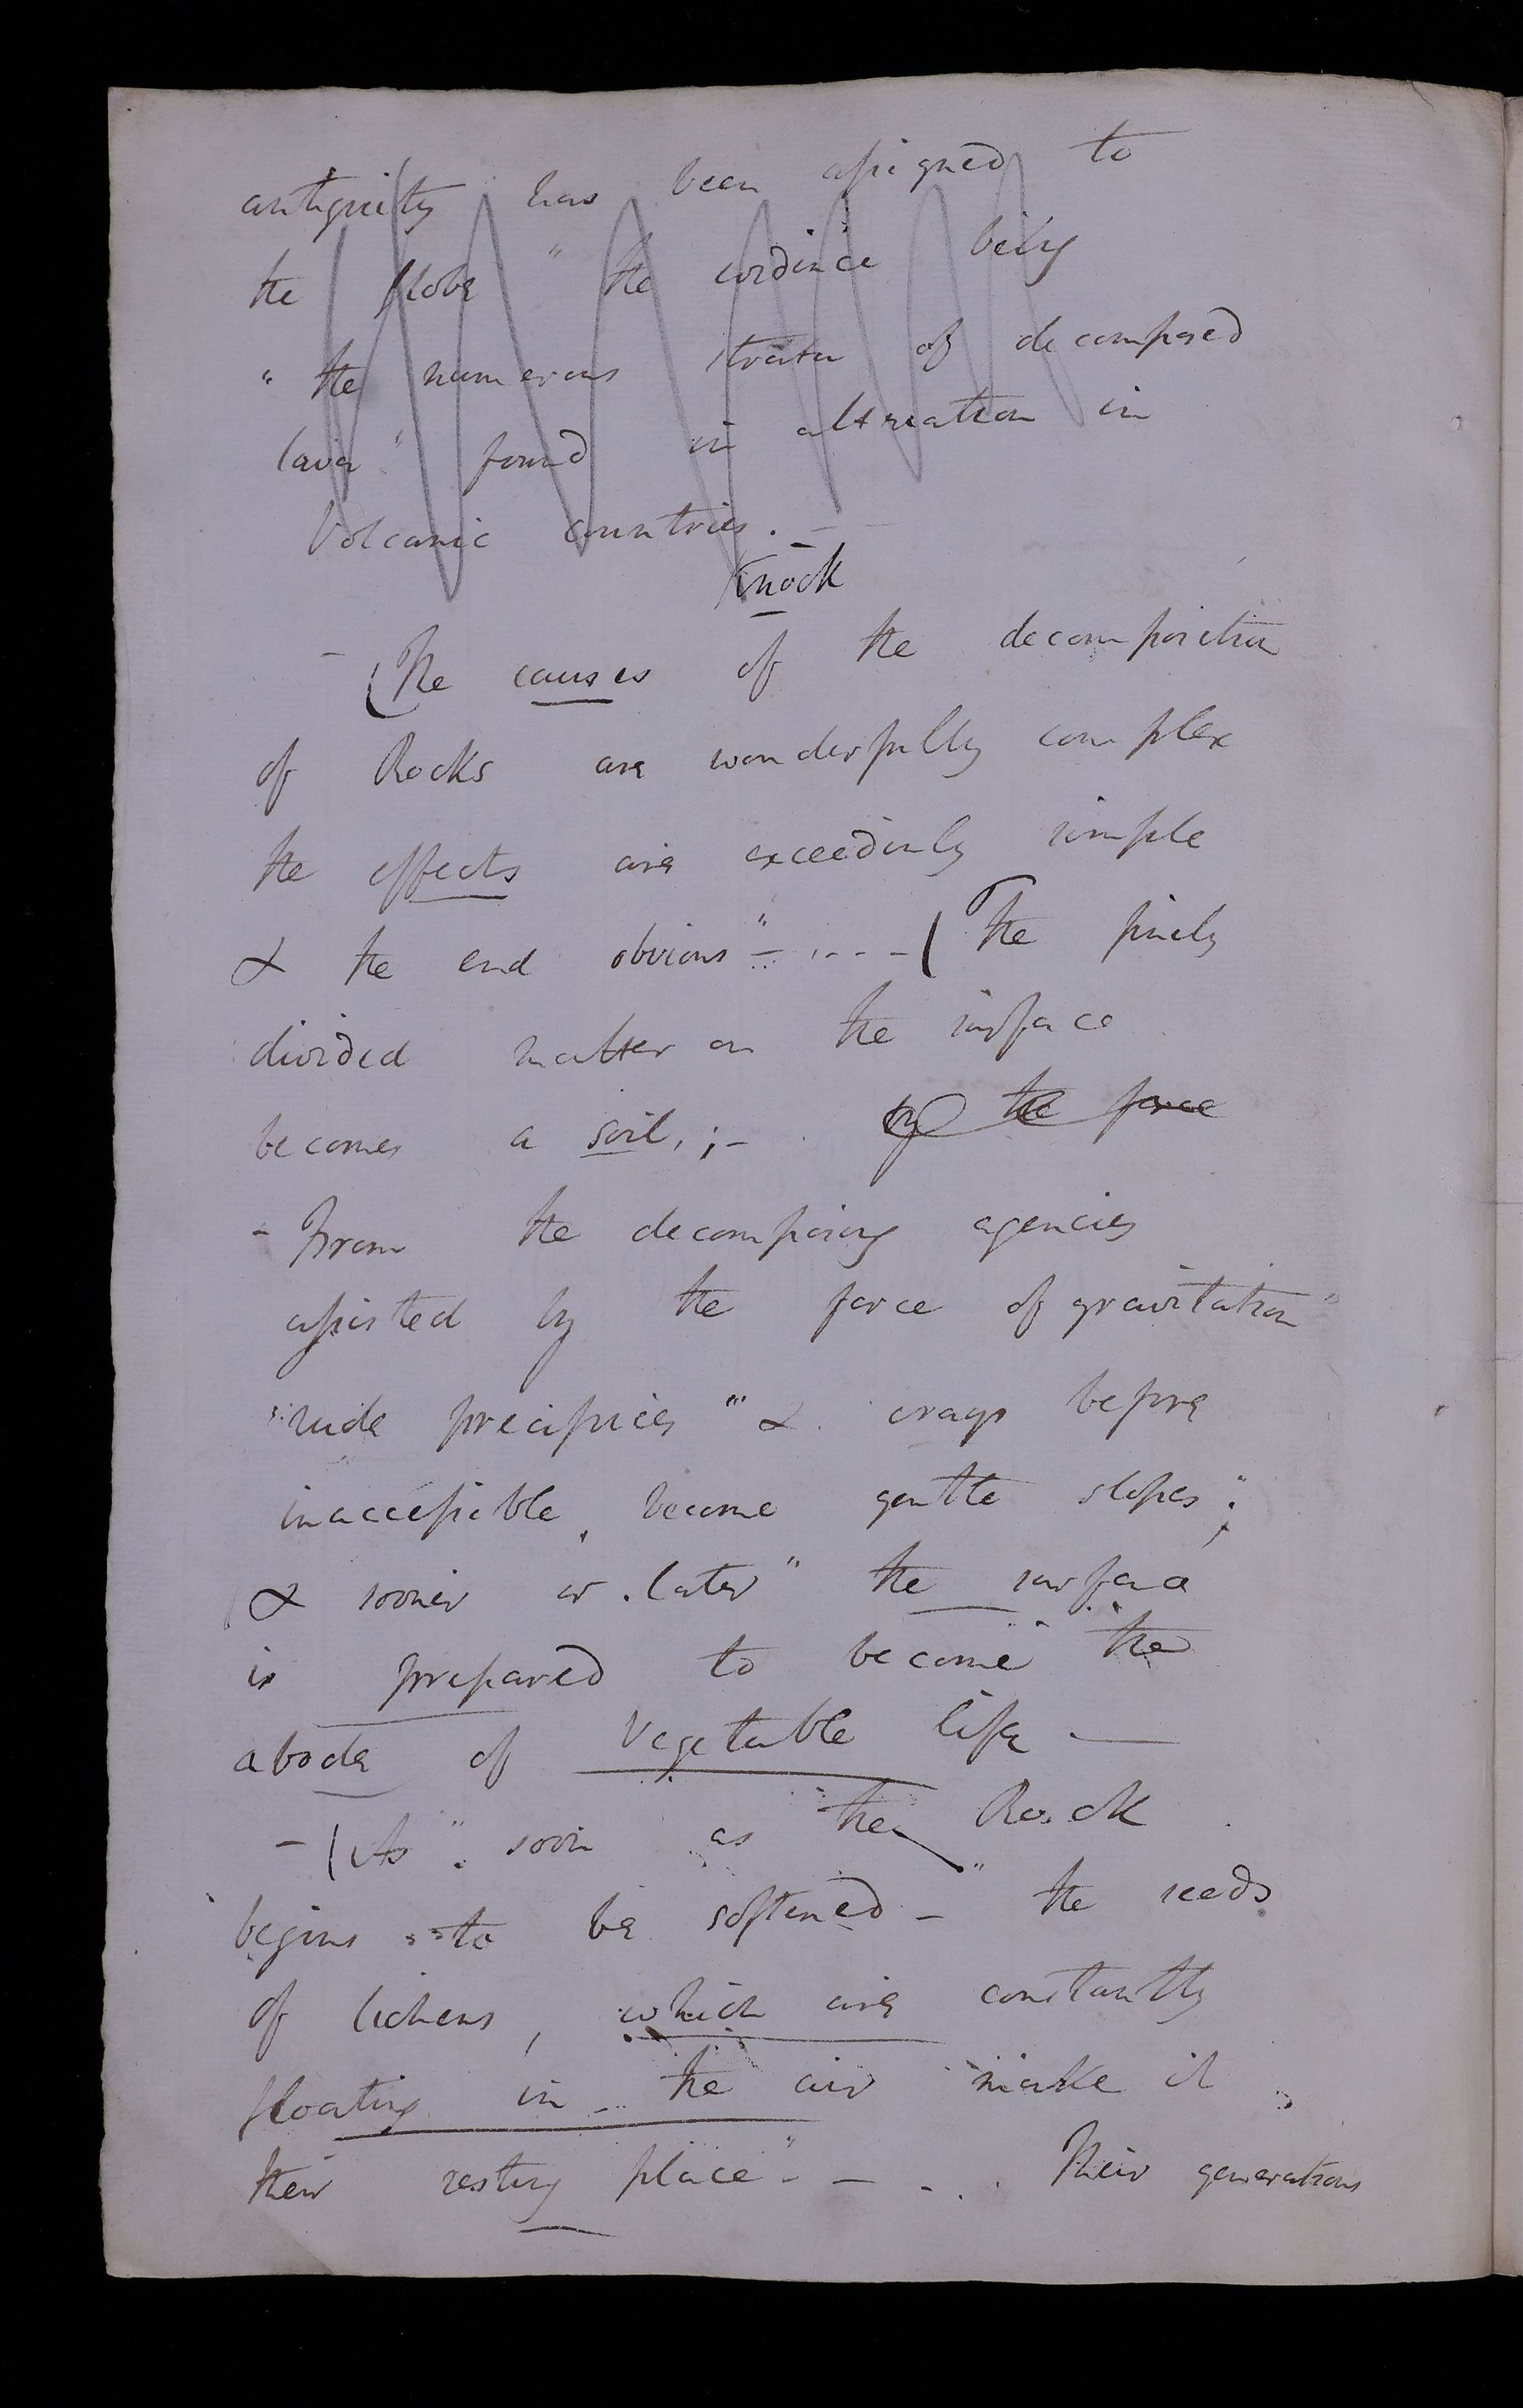 antiquity has been assigned to
the globe " the evidence being
" the numerous strata of decomposed
lava " found in alternation in
Volcanic countries. —
Knock
— (The causes of the decomposition
of Rocks are wonderfully complex
the effects are exceedinly simple
& the end obvious" - .... - ( The finely
divided matter on the surface
becomes a soil, ; - by the force
- From the decomposing agencies
assisted by the force of gravitation"
"rude precipices "" & crags before
inaccessible, become gentle slopes";
& sooner or later " the surface
is prepared to become the
abode of Vegetable life —
- (As " soon as the Rock
begins to be softened - " the seeds
of lichens, which are constantly
floating in the air make it
their resting place" - — . . . Their generations